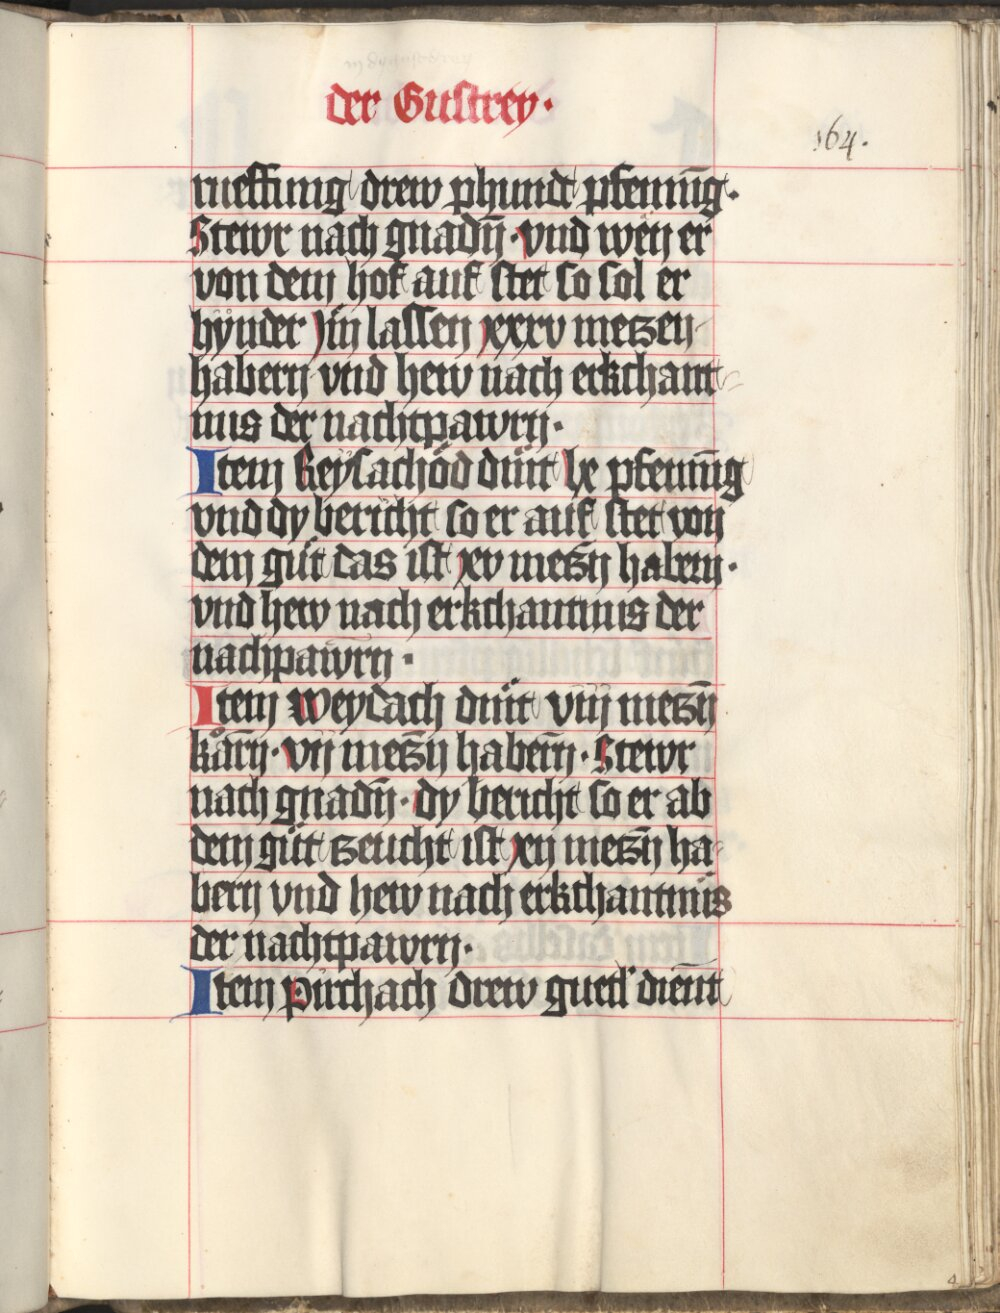 der Gustrey·
164.
rueffung drew phundt pfenīng·
Stewr nach gnadn̄·vnd wen er
von dem hof auf stet so sol er
hÿnder jm lassen xxxv meczen
habern vnd hew nach erkchant
nus der nachtpawrn·
Item Reysachöd dint lx pfenīng
vnd dy bericht so er auf stet von
dem güt das ist xv meczn habern·
vnd hew nach erkchantnus der
nachpawrn·
Item Weydach dint viij meczn̄
karn̄·vij meczn̄ habern̄·Stewr
nach gnadn̄·dy bericht so er ab
dem güt zeucht ist xij meczn̄ ha
bern vnd hew nach erkchantnus
der nachtpawrn·
Item Pirchach drew guetl dient